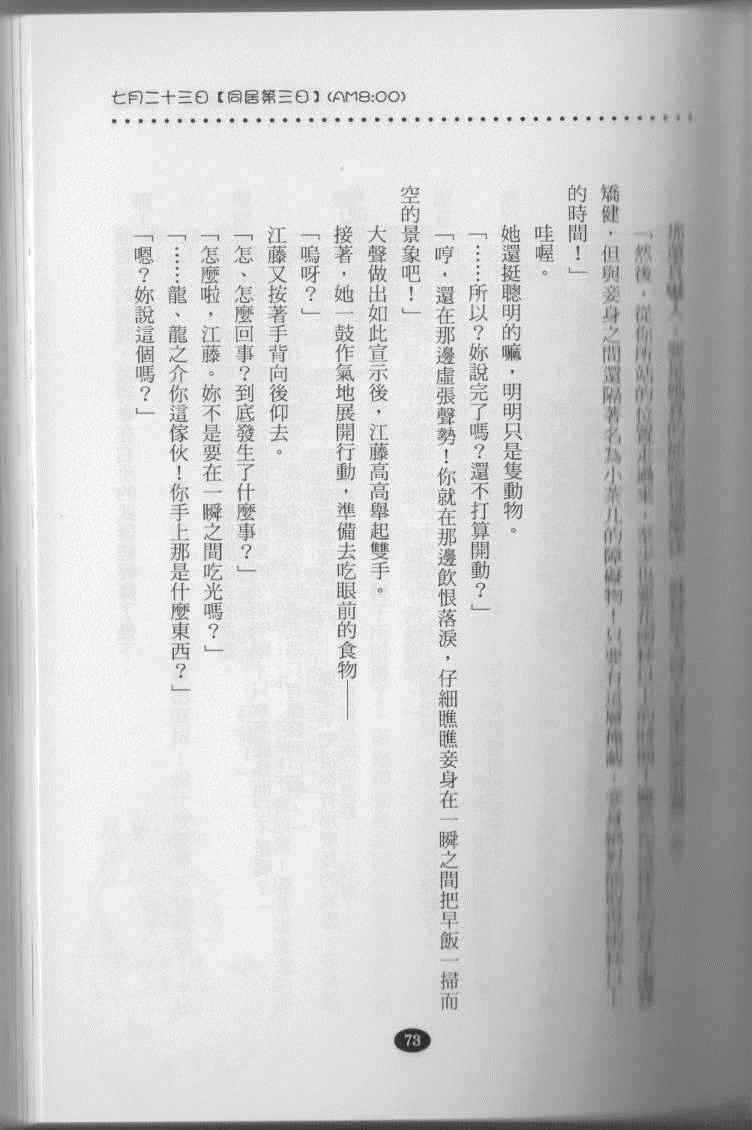 七月二十三日【同居第三日】(AM8:00)
「然後，從你所站的位置
矯健，但與妾身之間還隔著名為小茶几的障礙物！只要有
的時間！」
哇喔。
她還挺聰明的嘛，明明只是隻動物。
「……所以？妳說完了嗎？還不打算開動？」
「哼，還在那邊虛張聲勢！你就在那邊飲恨落淚，仔細瞧瞧妾身在一瞬之間把早飯一掃而
空的景象吧！」
大聲做出如此宣示後，江藤高高舉起雙手。
接著，她一鼓作氣地展開行動，準備去吃眼前的食物——
「嗚呀？」
江藤又按著手背向後仰去。
「怎、怎麼回事？到底發生了什麼事？」
「怎麼啦，江藤。妳不是要在一瞬之間吃光嗎？」
「……龍、龍之介你這傢伙！你手上那是什麼東西？」
「嗯？妳說這個嗎？」
73